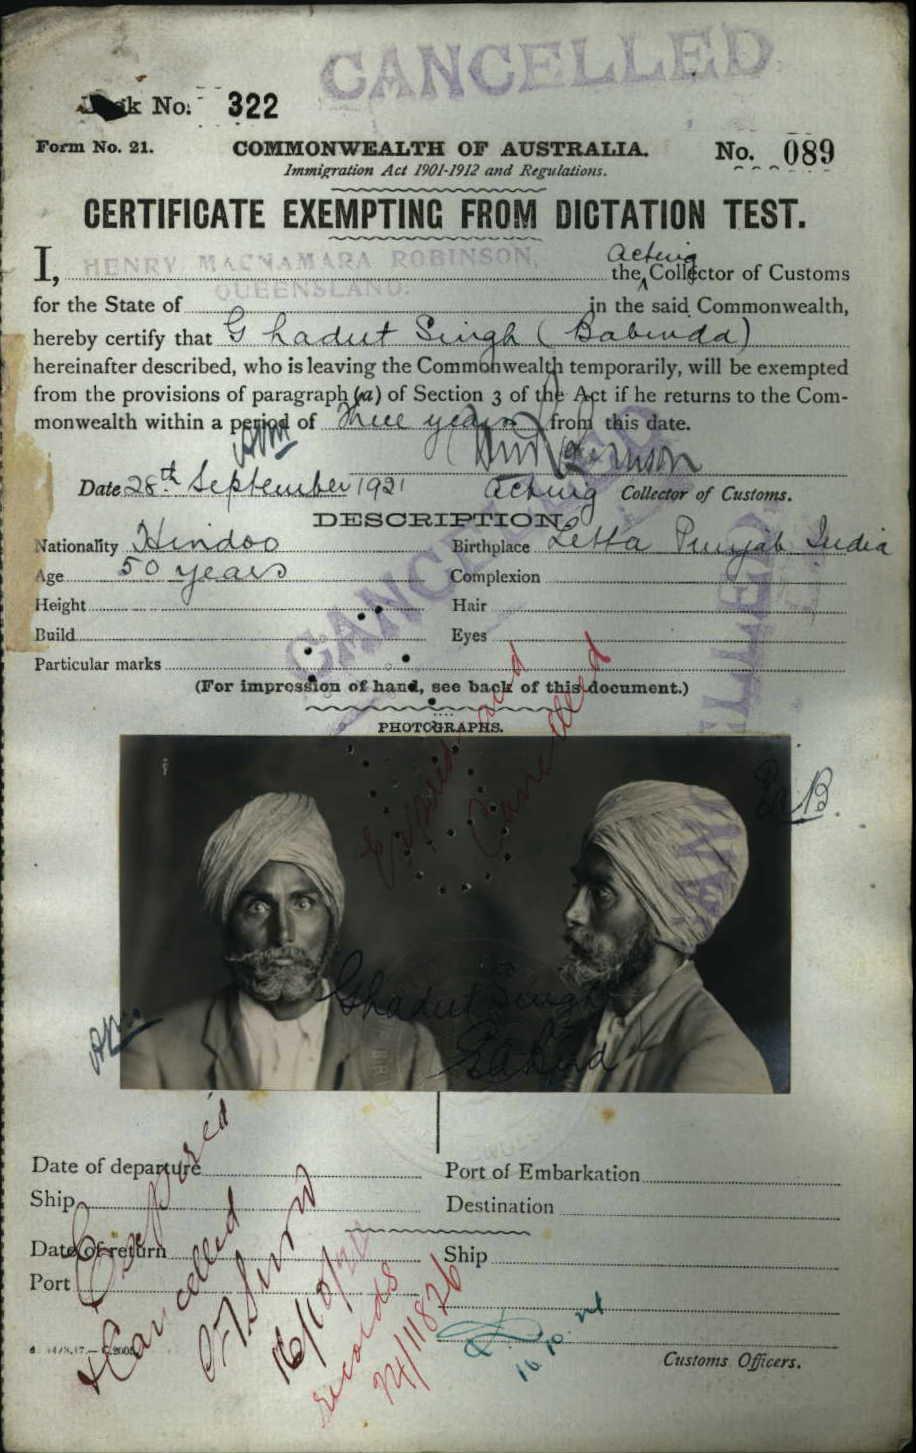 CANCELLED
Book No. 322
Form No. 21.
COMMONWEALTH OF AUSTRALIA.
No. 089
Immigration Act 1901-1912 and Regulations.
CERTIFICATE EXEMPTING FROM DICTATION TEST.
I, HENRY MACNAMARA ROBINSON, the Acting Collector of Customs
for the State of QUEENSLAND. in the said Commonwealth,
hereby certify that Ghadut Singh (Babinda)
hereinafter described, who is leaving the Commonwealth temporarily, will be exempted
from the provisions of paragraph (a) of Section 3 of the Act if he returns to the Com-
monwealth within a period of three years from this date.
Date 28th September 1921 Acting Collector of Customs.
CANCELLED
DESCRIPTION.
Nationality Hindoo Birthplace Letta Punjab India
Age 50 years Complexion
Height Hair
Build Eyes
Particular marks
(For impression of hand, see back of this document.)
PHOTOGRAPHS.
Expired and
Cancelled
Ghadut Singh
Date of departure Port of Embarkation
Ship Destination
Date of return Ship
Port
Expired
& Cancelled
16/10/26
records
Customs Officers.